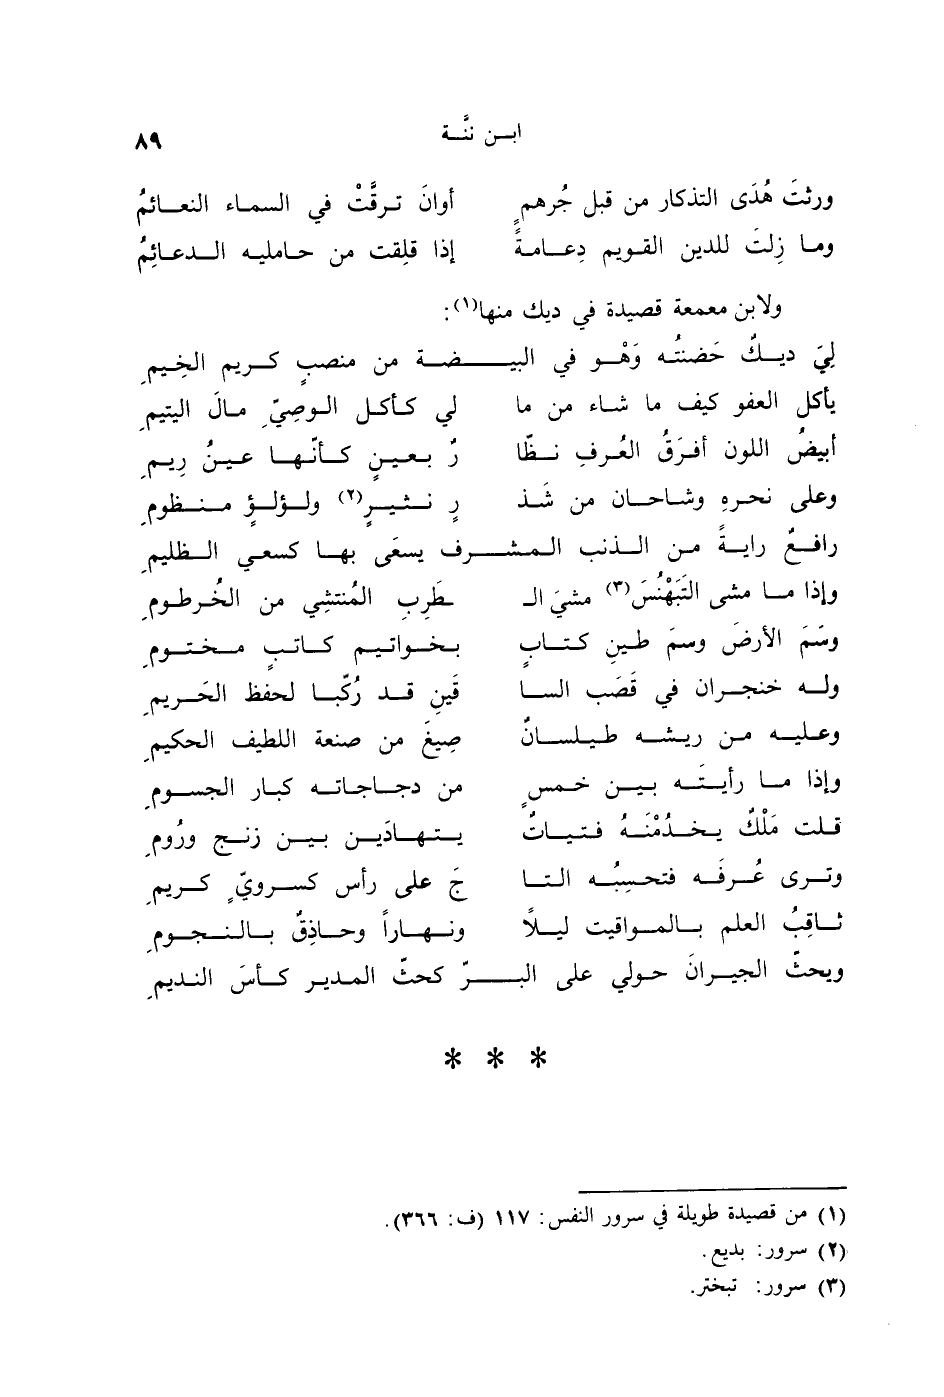 ابن ننَّة ٨٩
ورثتَ هُدَى التذكار من قبل جُرهمٍ أوانَ ترقَّتْ في السماء النعائمُ
وما زلتَ للدين القويم دِعامةً إذا قلِقت من حامليه الدعائمُ
ولابن معمعة قصيدة في ديك منها(١):
لِيَ ديكٌ حَضنتُه وَهْو في البيـضة من منصبٍ كريم الخِيمِ
يأكل العفو كيف ما شاء من ما لي كأكل الوصيّ مالَ اليتيمِ
أبيضُ اللون أفرَقُ العُرفِ نظّا رٌ بعينٍ كأنّها عينُ رِيمِ
وعلى نحره وشاحان من شَذ رٍ نثيرٍ(٢) ولؤلؤٍ منظومِ
رافعٌ رايةً من الذنب المشرف يسعَى بها كسعي الظليمِ
وإذا ما مشى التَبَهْنُسَ(٣) مشيَ الـ ـطَرِبِ المُنتشِي من الخُرطومِ
وسَمَ الأرضَ وسمَ طينِ كتابٍ بخواتيم كاتبٍ مختومِ
وله خنجران في قَصَب السا قَينِ قد رُكِّبا لحفظ الحَريمِ
وعليه من ريشه طيلسانٌ صِيغَ من صنعة اللطيف الحكيمِ
وإذا ما رأيتَه بين خمسٍ من دجاجاته كبار الجسومِ
قلت مَلْكٌ يخدُمْنَهُ فتياتٌ يتهادَين بين زنج ورُومِ
وترى عُرفَه فتحسِبُه التا جَ على رأس كسرويٍّ كريمِ
ثاقبُ العلم بالمواقيت ليلاً ونهاراً وحاذقٌ بالنجومِ
ويحثّ الجيرانَ حولي على البـرّ كحثّ المدير كأسَ النديمِ
* * *
(١) من قصيدة طويلة في سرور النفس: ١١٧ (ف: ٣٦٦).
(٢) سرور: بديع.
(٣) سرور: تبختر.